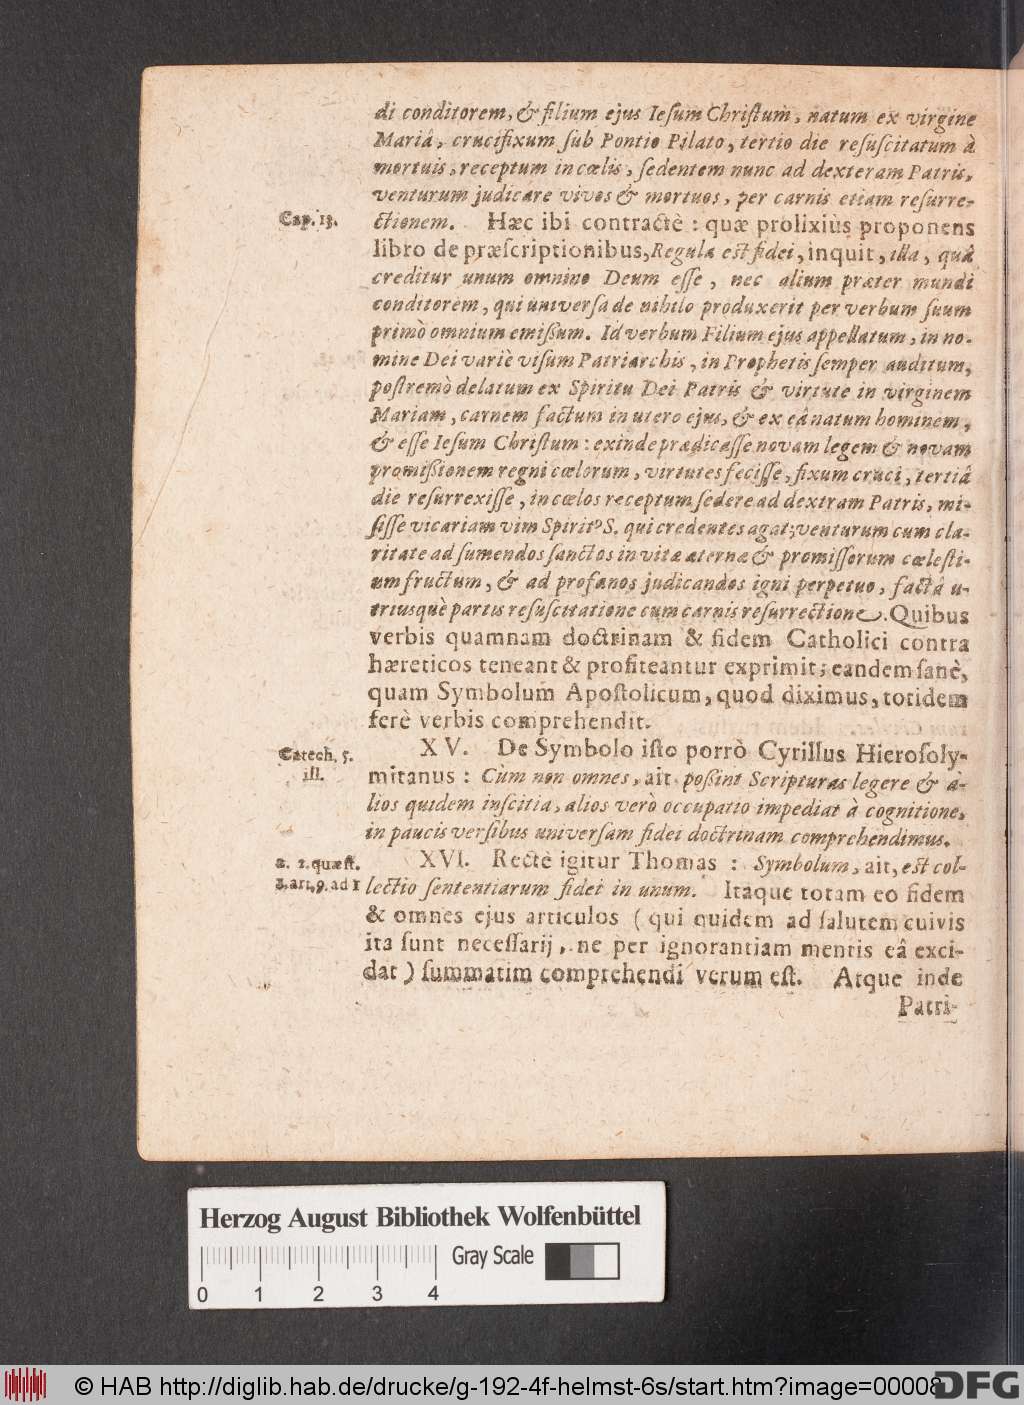 di conditorem, & filium ejus Iesum Christum, natum ex virgine
Mariâ, crucifixum sub Pontio Pilato, tertio die resuscitatum à
mortuis, receptum in cœlis, sedentem nunc ad dexteram Patris,
venturum judicare vivos & mortuos, per carnis etiam resurre-
Cap. 13.
ctionem. Hæc ibi contractè: quæ prolixiùs proponens
libro de præscriptionibus, Regula est fidei, inquit, illa, quâ
creditur unum omnino Deum esse, nec alium præter mundi
conditorem, qui universa de nihilo produxerit per verbum suum
primò omnium emissum. Id verbum Filium ejus appellatum, in no-
mine Dei variè visum Patriarchis, in Prophetis semper auditum,
postremò delatum ex Spiritu Dei Patris & virtute in virginem
Mariam, carnem factum in utero ejus, & ex eâ natum hominem,
& esse Iesum Christum: exinde prædicasse novam legem & novam
promissionem regni cœlorum, virtutes fecisse, fixum cruci, tertiâ
die resurrexisse, in cœlos receptum sedere ad dextram Patris, mi-
sisse vicariam vim Spiritꝰ S. qui credentes agat; venturum cum cla-
ritate ad sumendos sanctos in vitæ æternæ & promissorum cœlesti-
um fructum, & ad profanos judicandos igni perpetuo, factâ u-
triusquè partis resuscitatione cum carnis resurrectione. Quibus
verbis quamnam doctrinam & fidem Catholici contra
hæreticos teneant & profiteantur exprimit; eandem sanè,
quam Symbolum Apostolicum, quod diximus, totidem
ferè verbis comprehendit.
Catech. 5.
ill.
XV. De Symbolo isto porrò Cyrillus Hierosoly-
mitanus: Cùm non omnes, ait possint Scripturas legere & a-
lios quidem inscitia, alios verò occupatio impediat à cognitione,
in paucis versibus universam fidei doctrinam comprehendimus.
2. 2. quæst.
1. art. 9. ad 1
XVI. Rectè igitur Thomas: Symbolum, ait, est col-
lectio sententiarum fidei in unum. Itaque totam eo fidem
& omnes ejus articulos (qui quidem ad salutem cuivis
ita sunt necessarij, ne per ignorantiam mentis eâ exci-
dat) summatim comprehendi verum est. Atque inde
Patri-
Herzog August Bibliothek Wolfenbüttel
Gray Scale
0 1 2 3 4
© HAB http://diglib.hab.de/drucke/g-192-4f-helmst-6s/start.htm?image=00008
DFG